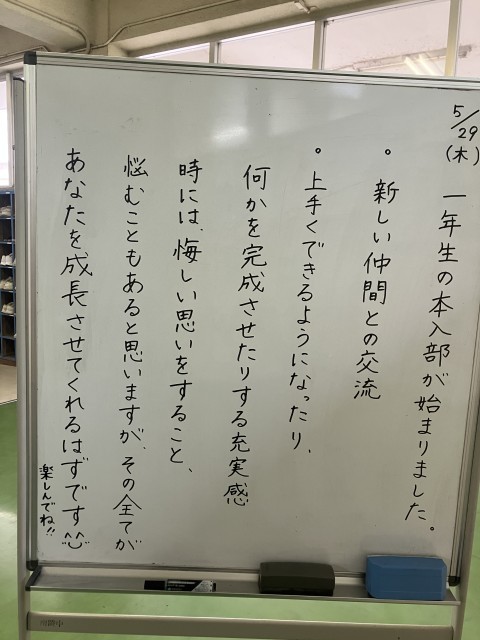 5/29
(木)
一年生の本入部が始まりました。
。新しい仲間との交流
。上手くできるようになったり、
何かを完成させたりする充実感
時には、悔しい思いをすること、
悩むこともあると思いますが、その全てが
あなたを成長させてくれるはずです
楽しんでね!!